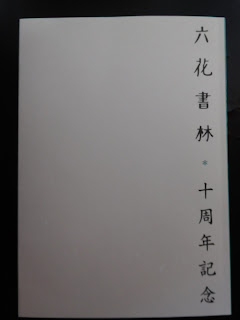 六花書林・十周年記念